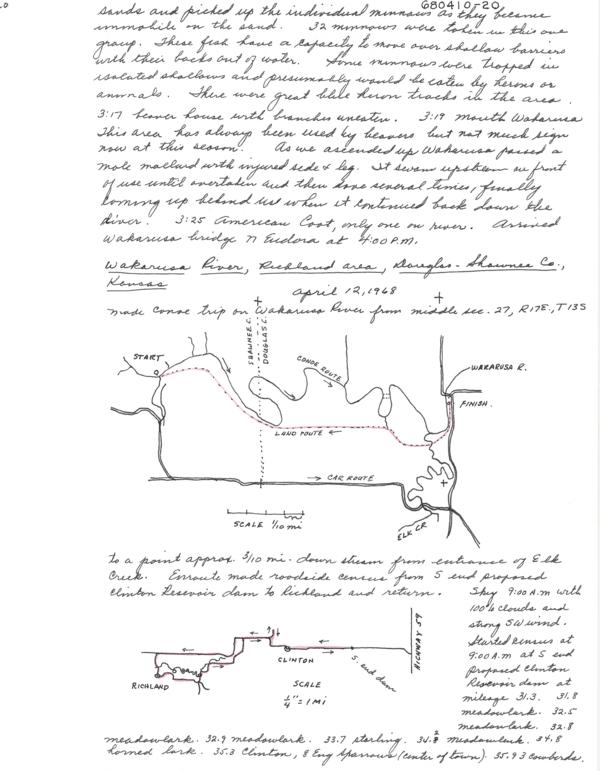 680410-20
sands and picked up the individual minnows as they became
immobile on the sand. 32 minnows were taken in this one
group. These fish have a capacity to move over shallow barriers
with their backs out of water. Some minnows were trapped in
isolated shallows and presumably would be eaten by herons or
animals. There were great blue heron tracks in the area.
3:17 beaver house with branches uneaten. 3:19 mouth Wakarusa
This area has always been used by beavers but not much sign
now at this season. As we ascended up Wakarusa passed a
male mallard with injured side & leg. It swam upstream in front
of us until overtaken and then dove several times, finally
coming up behind us when it continued back down the
river. 3:25 American Coot, only one on river. Arrived
Wakarusa bridge N Eudora at 4:00 P.M.
Wakarusa River, Richland area, Douglas-Shawnee Co.,
Kansas
April 12, 1968
made canoe trip on Wakarusa River from middle sec. 27, R17E, T13S
START
SHAWNEE C.
DOUGLAS C.
CANOE ROUTE
WAKARUSA R.
FINISH.
LAND ROUTE
CAR ROUTE
SCALE 1/10 mi
ELK CR
to a point approx. 3/10 mi. down stream from entrance of Elk
Creek. Enroute made roadside census from S end proposed
Clinton Resevoir dam to Richland and return. Sky 9:00 A.m with
100% clouds and
strong SW wind.
Started census at
9:00 A.m at S end
proposed Clinton
Resevoir dam at
mileage 31.3. 31.8
meadowlark. 32.5
meadowlark. 32.8
CLINTON
S. end dam
HIGHWAY 59
RICHLAND
SCALE
1/4" = 1 MI
meadowlark. 32.9 meadowlark. 33.7 starling. 34.2 meadowlark. 34.8
horned lark. 35.3 Clinton, 8 Eng Sparrows (center of town). 35.9 3 cowbirds.